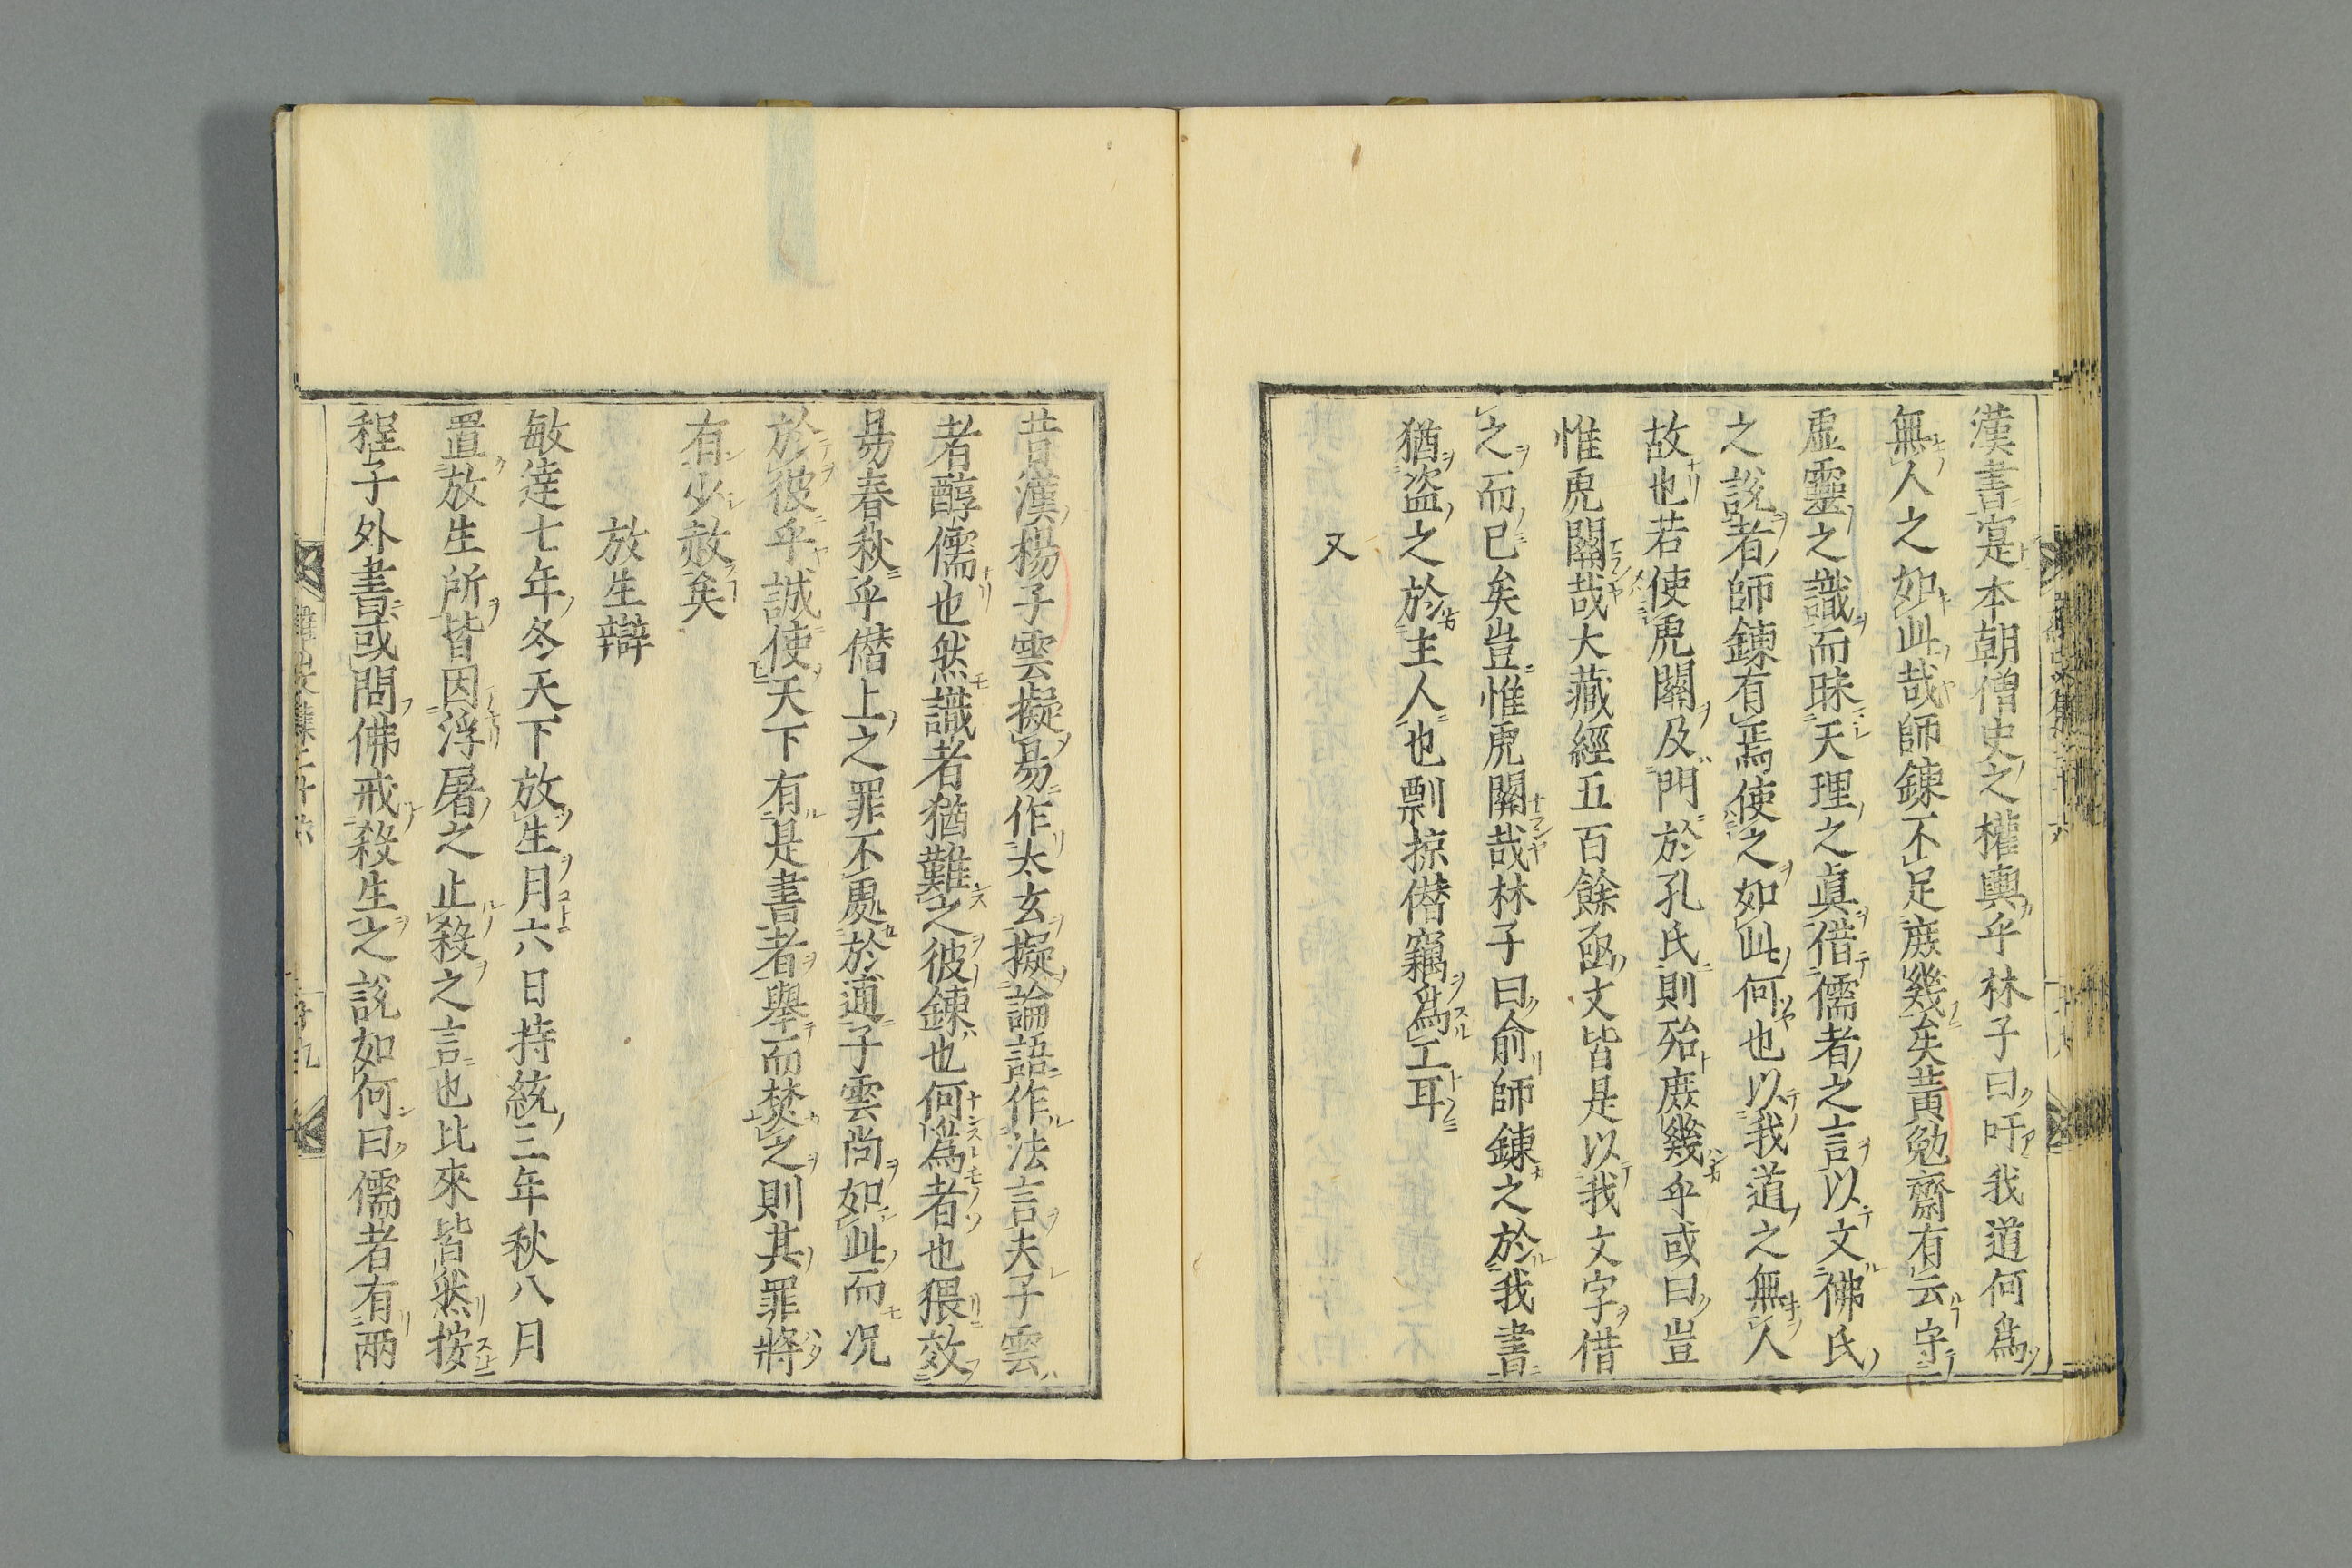 漢書寔本朝僧史之權輿乎林子曰吁我道何為
無人之如此哉師錬不足庶幾矣黄勉齋有云守
虚靈之識而昧天理之眞借儒者之言以文佛氏
之說者師錬有焉使之如此何也以我道之無人
故也若使虎關及門於孔氏則殆庶幾乎或曰豈
惟虎關哉大藏經五百餘函文皆是以我文字借
之而已矣豈惟虎關哉林子曰俞師錬之於我書
猶盗之於主人也剽掠僣竊為工耳
又
昔漢楊子雲擬易作太玄擬論語作法言夫子雲
者醇儒也然識者猶難之彼錬也何為者也猥效
易春秋乎僣上之罪不處於逋子雲尚如此而况
於彼乎誠使天下有是書者舉而焚之則其罪將
有少赦矣
放生辯
敏達七年冬天下放生月六日持統三年秋八月
置放生所皆因浮屠之止殺之言也比來皆然按
程子外書或問佛戒殺生之說如何曰儒者有兩